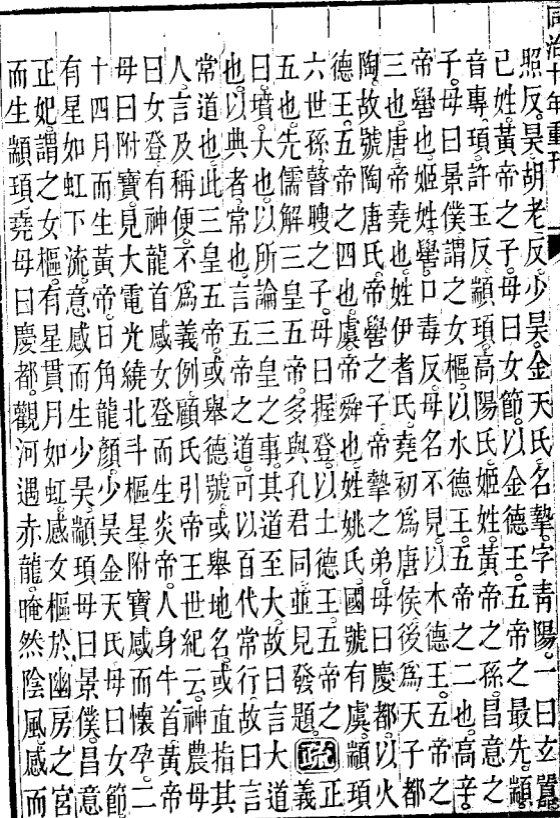 同治十年重刊
照反。昊胡老反。少昊。金天氏。名摯。字青陽。一曰玄囂。
己姓。黃帝之子。母曰女節。以金德王。五帝之最先。顓
音專。頊許玉反。顓頊。高陽氏。姬姓。黃帝之孫。昌意之
子。母曰景僕。謂之女樞。以水德王。五帝之二也。高辛。
帝嚳也。姬姓。嚳口毒反。母名不見。以木德王。五帝之
三也。唐帝堯也。姓伊耆氏。堯初爲唐侯。後爲天子。都
陶。故號陶唐氏。帝嚳之子。帝摯之弟。母曰慶都。以火
德王。五帝之四也。虞帝舜也。姓姚氏。國號有虞。顓頊
六世孫。瞽瞍之子。母曰握登。以土德王。五帝之
五也。先儒解三皇五帝。多與孔君同。並見發題。疏正義
曰。墳大也。以所論三皇之事。其道至大。故曰言大道
也。以典者常也。言五帝之道。可以百代常行。故曰言
常道也。此三皇五帝。或舉德號。或舉地名。或直指其
人。言及稱便。不爲義例。顧氏引帝王世紀云。神農母
曰女登。有神龍首感女登而生炎帝。人身牛首。黃帝
母曰附寶。見大電光繞北斗樞星。附寶感而懷孕。二
十四月而生黃帝。日角龍顏。少昊金天氏。母曰女節。
有星如虹下流。意感而生少昊。顓頊母曰景僕。昌意
正妃。謂之女樞。有星貫月如虹。感女樞於幽房之宮
而生顓頊。堯母曰慶都。觀河遇赤龍。晻然陰風。感而